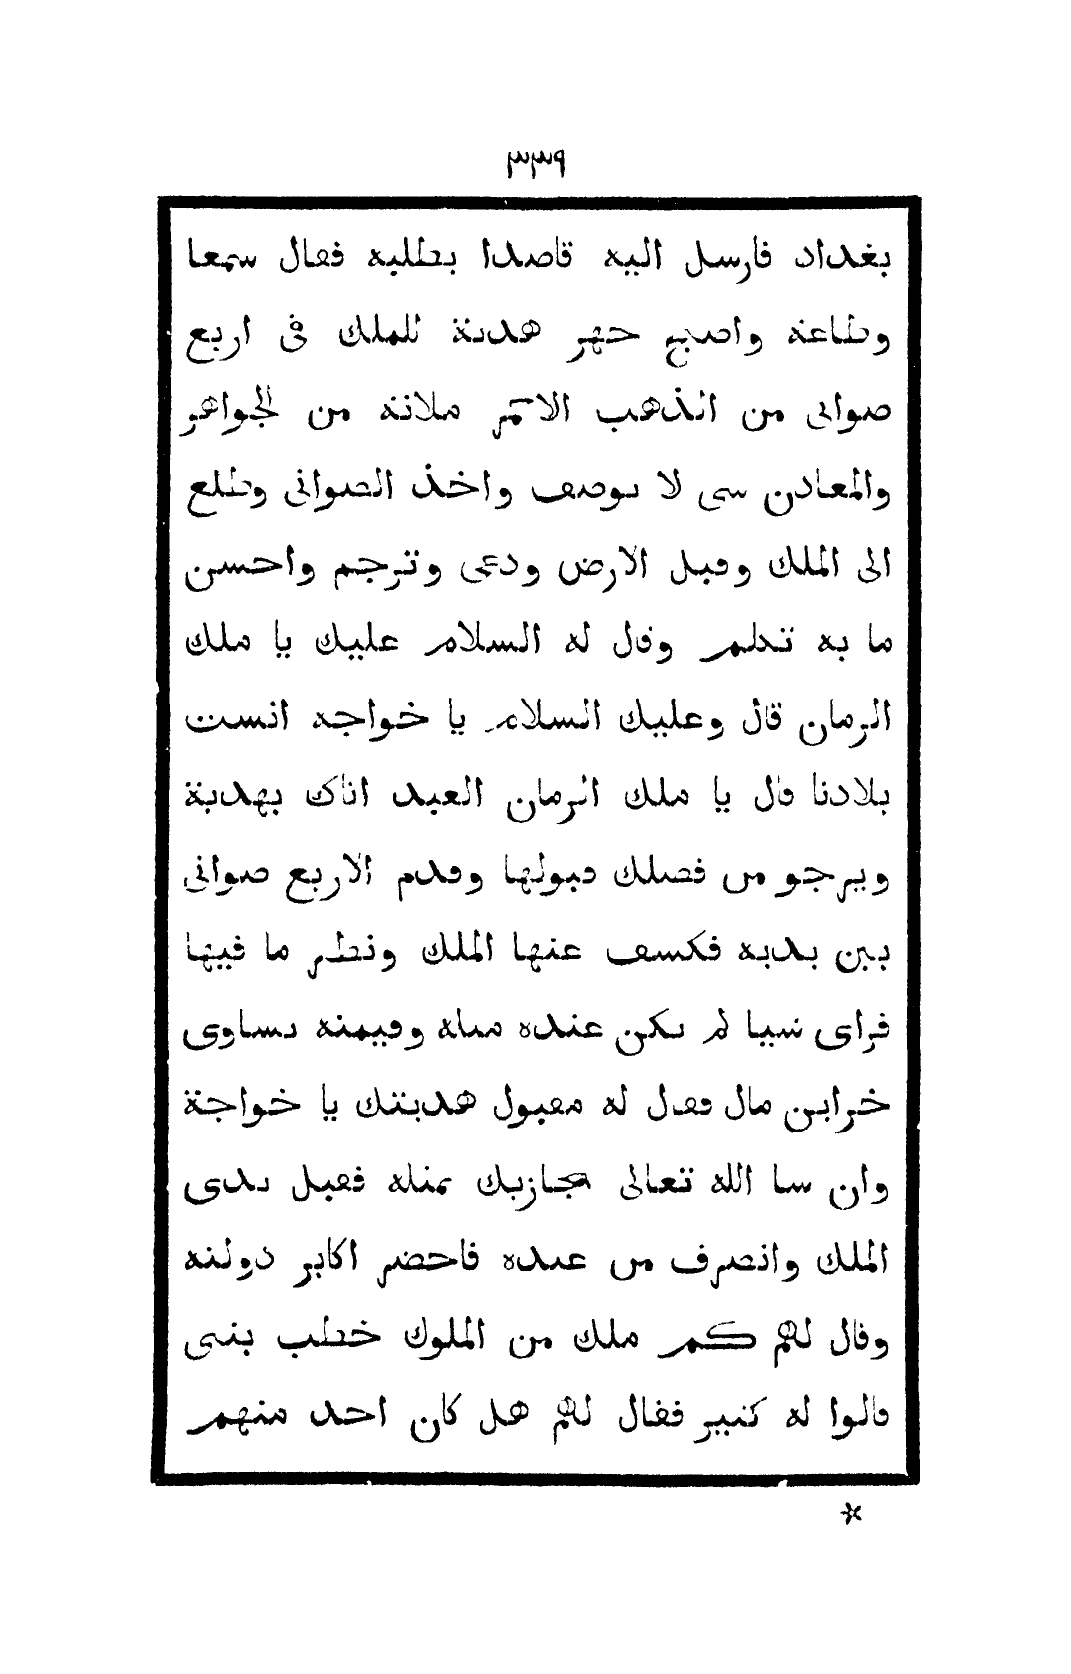 ٣٣٩
بغداد فارسل اليه قاصدا بطلبه فقال سمعا
وطاعة واصبح جهز هدية للملك فى اربع
صوانى من الذهب الاحمر ملانة من الجواهر
والمعادن شى لا يوصف واخذ الصوانى وطلع
الى الملك وقبل الارض ودعى وترجم واحسن
ما به تكلم وقال له السلام عليك يا ملك
الزمان قال وعليك السلام يا خواجه انست
بلادنا قال يا ملك الزمان العبد اتاك بهدية
ويرجو من فضلك قبولها وقدم الاربع صوانى
بين يديه فكشف عنها الملك ونظر ما فيها
فراى شيا لم يكن عنده مثله وقيمته تساوى
خزاين مال فقال له مقبول هديتك يا خواجة
وان شا الله تعالى نجازيك بمثله فقبل يدى
الملك وانصرف من عنده فاحضر اكابر دولته
وقال لهم كم ملك من الملوك خطب بنتى
قالوا له كتير فقال لهم هل كان احد منهم
*